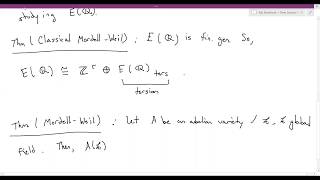 studying E(ℚ)
Thm (Classical Mordell-Weil) : E(ℚ) is fin. gen. So,
E(ℚ) ≅ ℤ^r ⊕ E(ℚ)_tors.
torsion
Thm (Mordell-Weil) : Let A be an abelian variety / k, k global
field. Then, A(k)